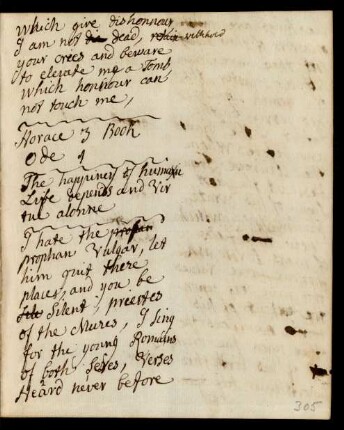 Which give dishonnour
I am not dead, withhold
your crees and beware
to elevate me a Tomb
which honnour can
not touch me,
Horace 3 Book
Ode 1
The happiness of humain
Life depends and Vir
tue alonne
I hate the profan
prophan Vulgar, let
him quit there
places, and you be
Silent, preestes
of the Muses, I sing
for the young Romans
of both Sexes, Verses
Heard never before
305